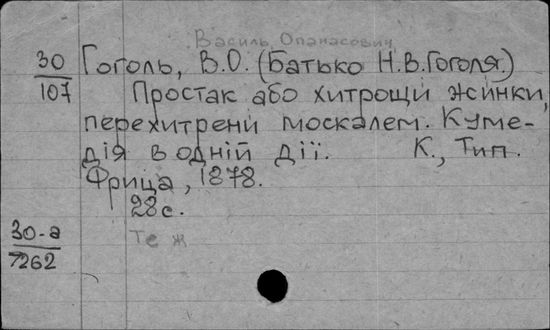 Василь Опанасович
30 Гоголь, В.О. (Батько Н.В.Гоголя)
107 Простак або хитрощи жинки,
перехитрени москалем. Куме-
дія в одній дії. К., Тип.
Фрица, 1878.
28с.
30-а Те ж
7262